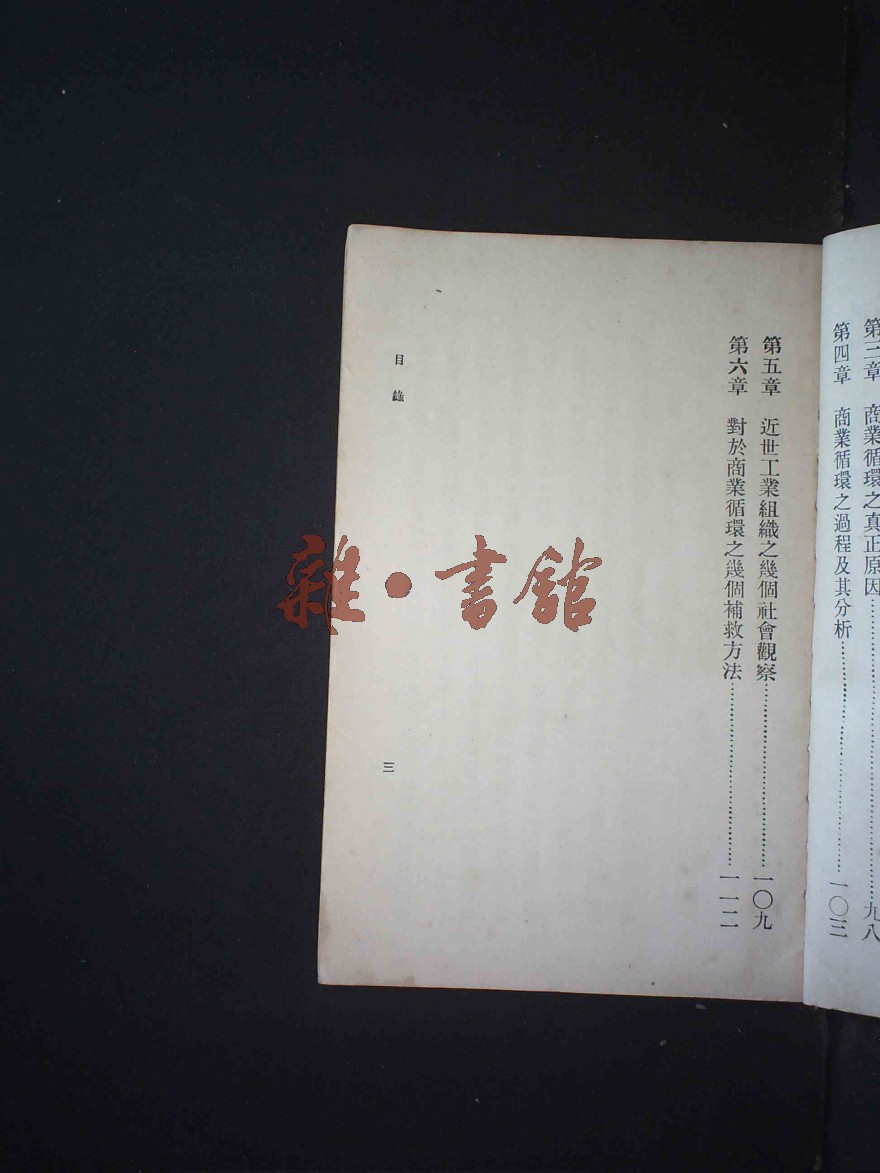 第三章　商業循環之真正原因……………………九八
第四章　商業循環之過程及其分析……………………一〇三
第五章　近世工業組織之幾個社會觀察……………………一〇九
第六章　對於商業循環之幾個補救方法……………………一一二
目錄
三
雜•書館